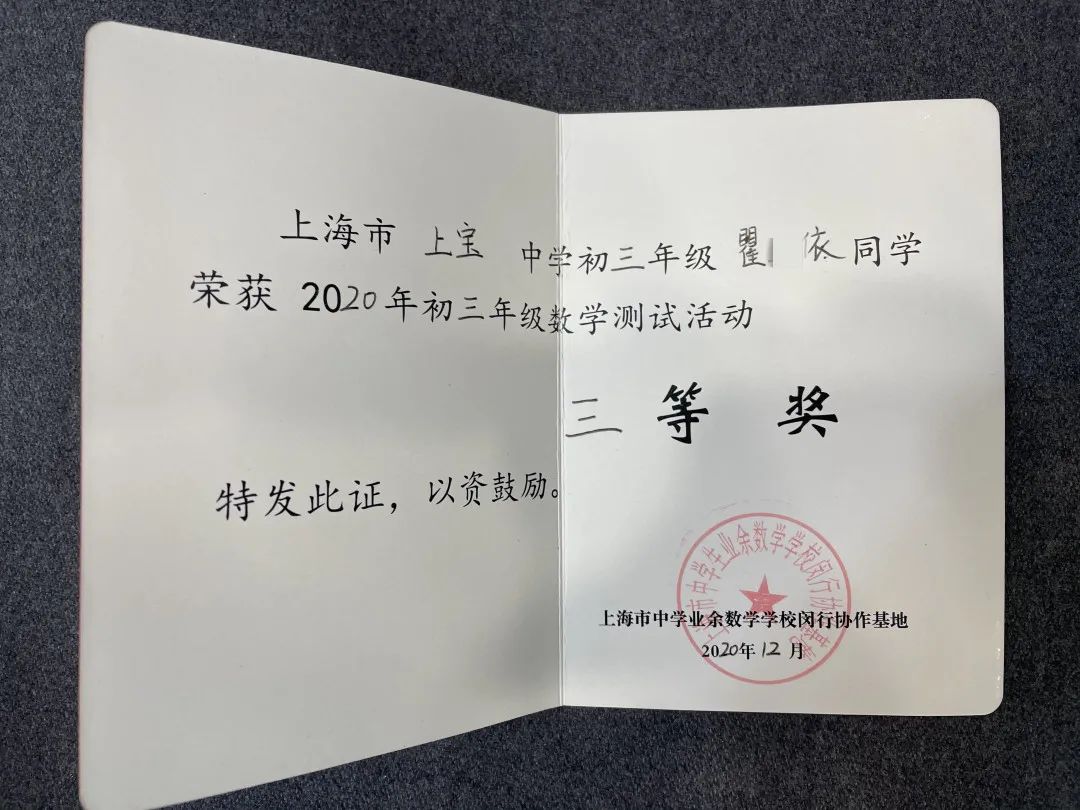 上海市 上宝 中学初三年级 瞿 依同学
荣获 2020年初三年级数学测试活动
三 等 奖
特发此证，以资鼓励。
上海市中学生业余数学学校闵行协作
上海市中学业余数学学校闵行协作基地
2020年12月